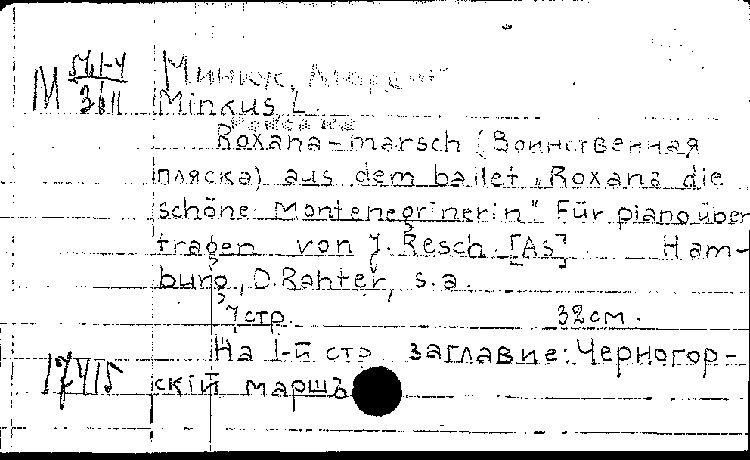 М 51.1-4
361
Минкус,
Minkus L.
Роксана
Roxana-marsch (Воинственная
пляска) aus dem ballet „Roxana die
schöne Montenegrinerin" Für piano über
tragen von J. Resch. [As] Ham-
burg, D. Rahter, s.a.
7 стр. 32 см.
На 1-й стр. заглавие: Черногор-
скій маршъ
17415